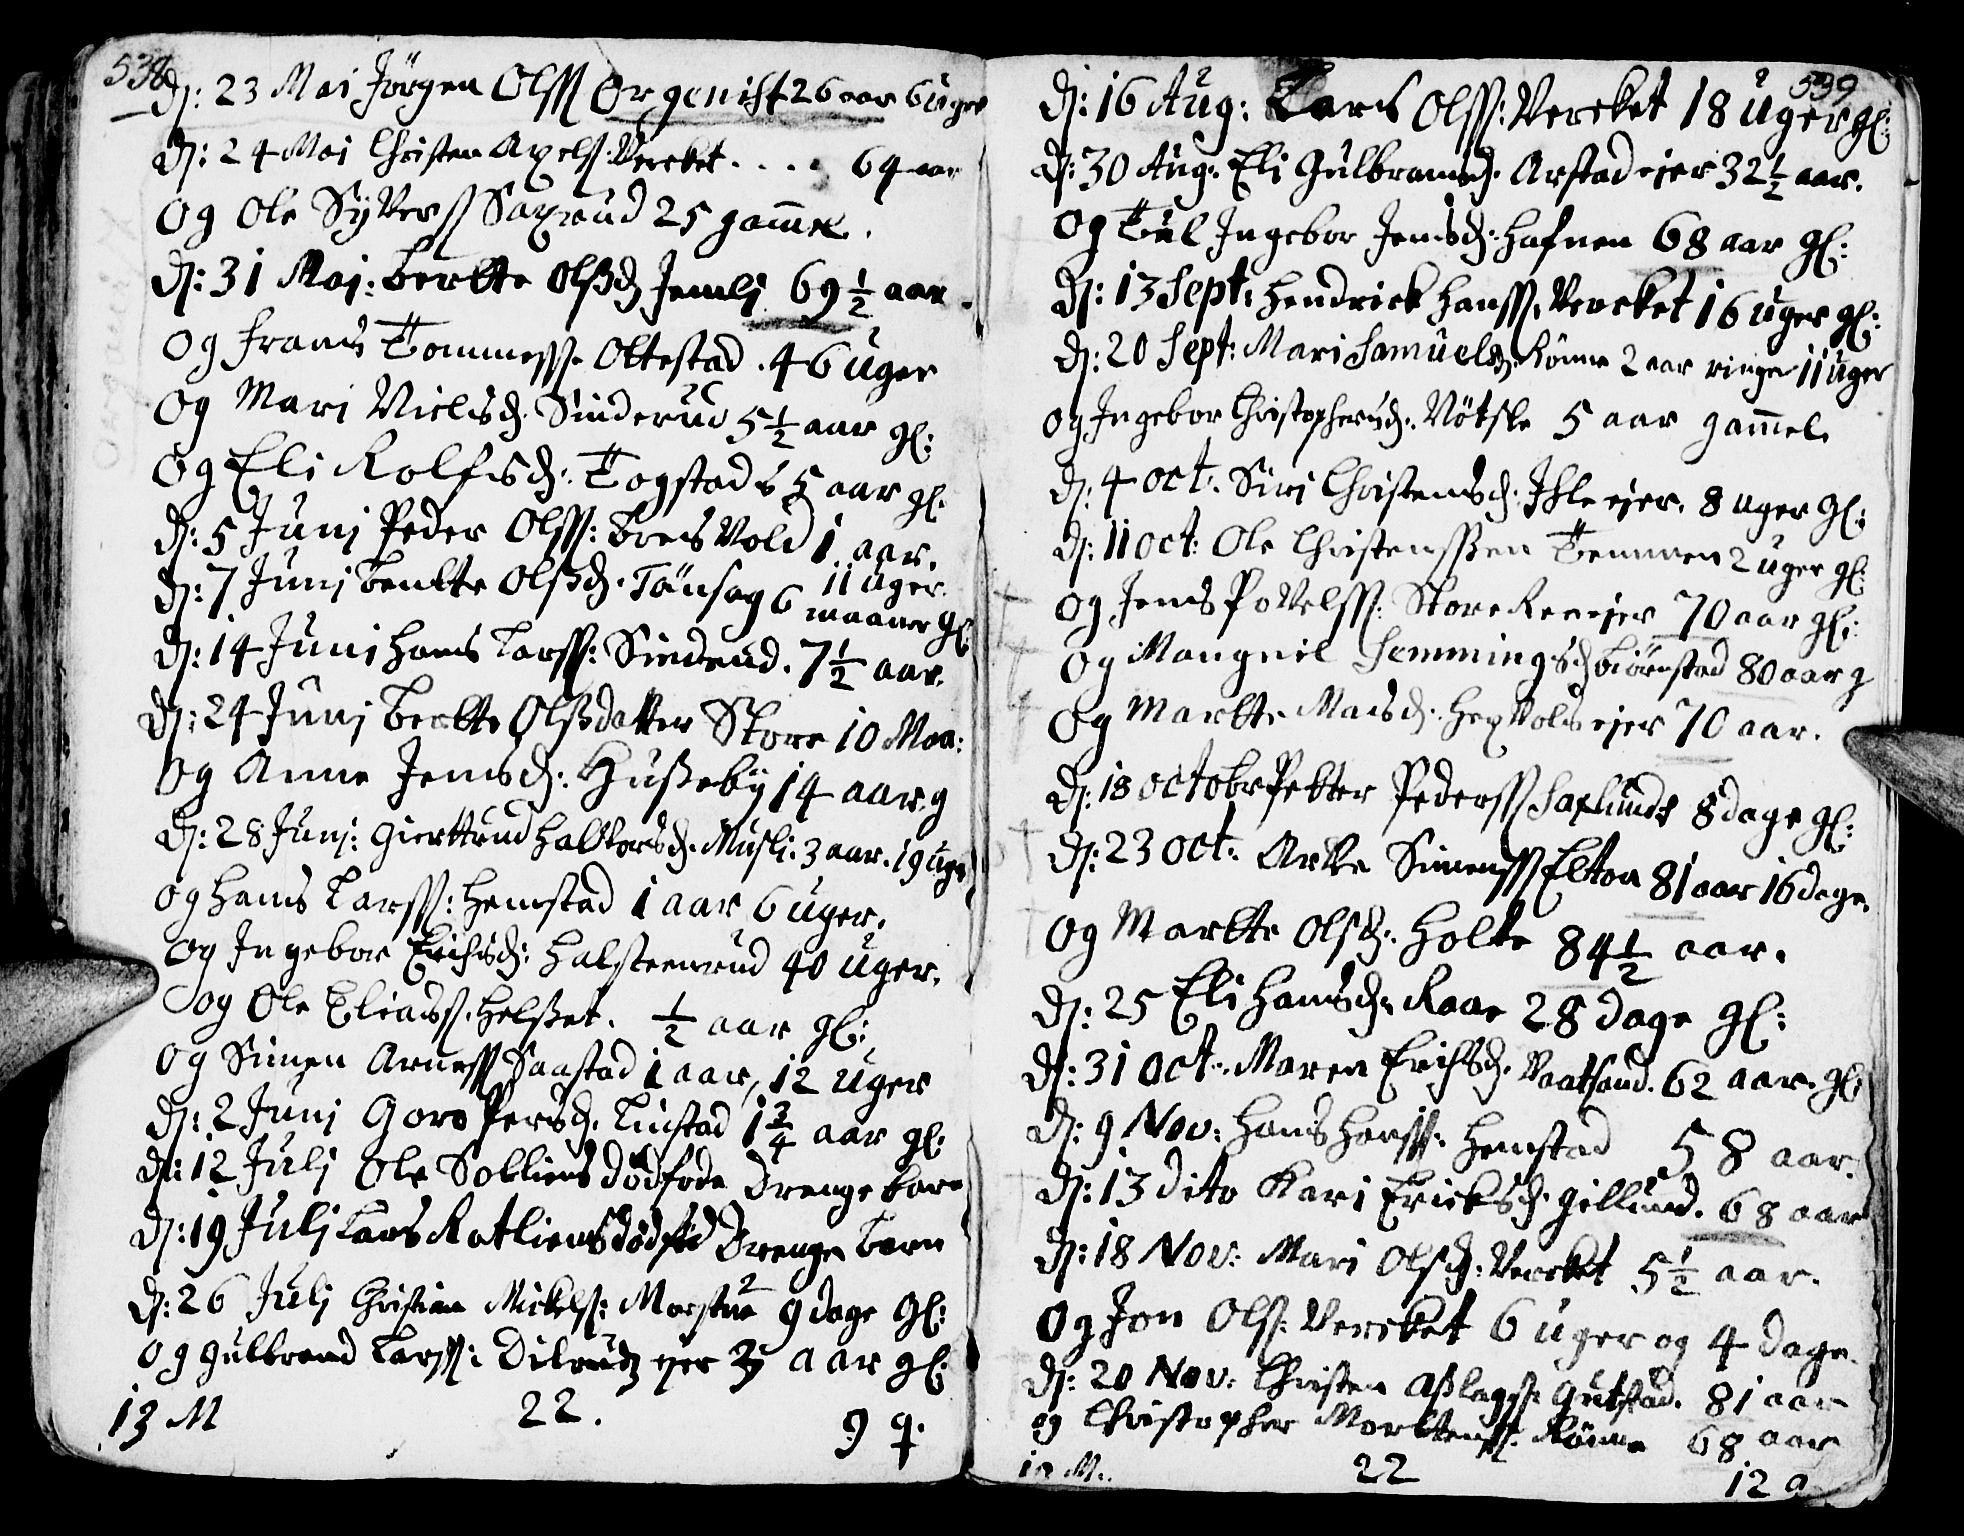 538
D: 23 Mai Jörgen Olss Organist 26 aar 6 Uger
D: 24 Mai Christen Axels: Verket.... 64 aar
Og Ole Syvers Saxrud 25 gammel.
D: 31 Maj: Berthe Olsd Jemli 69 1/2 aar.
Og Frans Tommess. Oltestad. 46 Uger
Og Mari Nielsd. Sinderud 5 1/2 aar gl:
Og Eli Rolfsd: Togstad 5 aar gl:
D: 5 Junj Peder Olss: Vold 1 aar.
11 Uger.
D: 7 Junj Berthe Olsd. Tönsag 6 maaner gl:
D: 14 Junj Hans Larss: Sinderud. 7 1/2 aar.
D: 24 Junj Berthe Olsdatter Store 10 Maa:
Og Anne Jensd: Husseby 14 aar. g
D: 28 Junj: Gierttrud Halvorsd. Musli. 3 aar. 19 Uge
Og Hans Larss: Hemstad 1 aar 6 Uger.
Og Ingebor Erichsd: Halsteenrud 40 Uger.
og Ole Eliass. Helset. 1/2 aar gl:
Og Simen Arness Saastad 1 aar, 12 Uger
D: 2 Junj Goro Persd. Linstad 1 3/4 aar gl:
D: 12 Julj Ole Solliens dödföde Drenge barn
D: 19 Julj Lars Rotliens dödföd Drenge Barn
D: 26 Julj Christian Mickels: Morstue 9 dage gl:
Og Gulbrand Larss: ejer aar gl:
13 M 22. 9 q.
539
D: 16 Aug: Lars Olss: Verket 18 Uger gl:
D: 30 Aug. Eli Gulbransd. Arstad ejer 32 1/2 aar.
Og Ingebor Jensd: Hafnen 68 aar gl:
D: 13 Sept: Hendrick Hanss: Verket 16 Uger gl:
D: 20 Sept: Mari Samuelsd. Rönne 2 aar ringer 11 Uger
og Ingebor Christophersd. Nötsle 5 aar gammel.
D: 4 oct. Siri Christensd. Ihle ejer. 8 Uger gl:
D: 11 oct: Ole Christenssen 2 Uger gl:
Og Jens Povelss: Store Ree ejer 70 aar gl:
Og Mangnil Hemmingsd Biörnstad 80 aar g
Og Marthe Madsd. ejer 70 aar.
D: 18 octobr Petter Pederss Saxlund 8 dage gl:
D: 23 oct: Arve Simenss Elton 81 aar 16 dage.
Og Marthe Olsd. Holte 84 1/2 aar.
D: 25 Eli Hansd. Raae 28 dage gl:
D: 31 oct. Maren Erichsd. Vaatsand. 62 aar. gl:
D: 9 Nov: Hans Hanss: Hemstad 58 aar.
D: 13 Dito Kari Ericksd. Gillund. 68 aar
D: 18 Nov: Mari Olsd: Verket 5 1/2 aar.
Og Jon Ols: Verket 6 Uger og 4 dage.
D: 20 Nov: Christen Aslags. Gutstad. 81 aar
og Christopher Mortens: Rönne 68 aar
10 M. 22 12 q